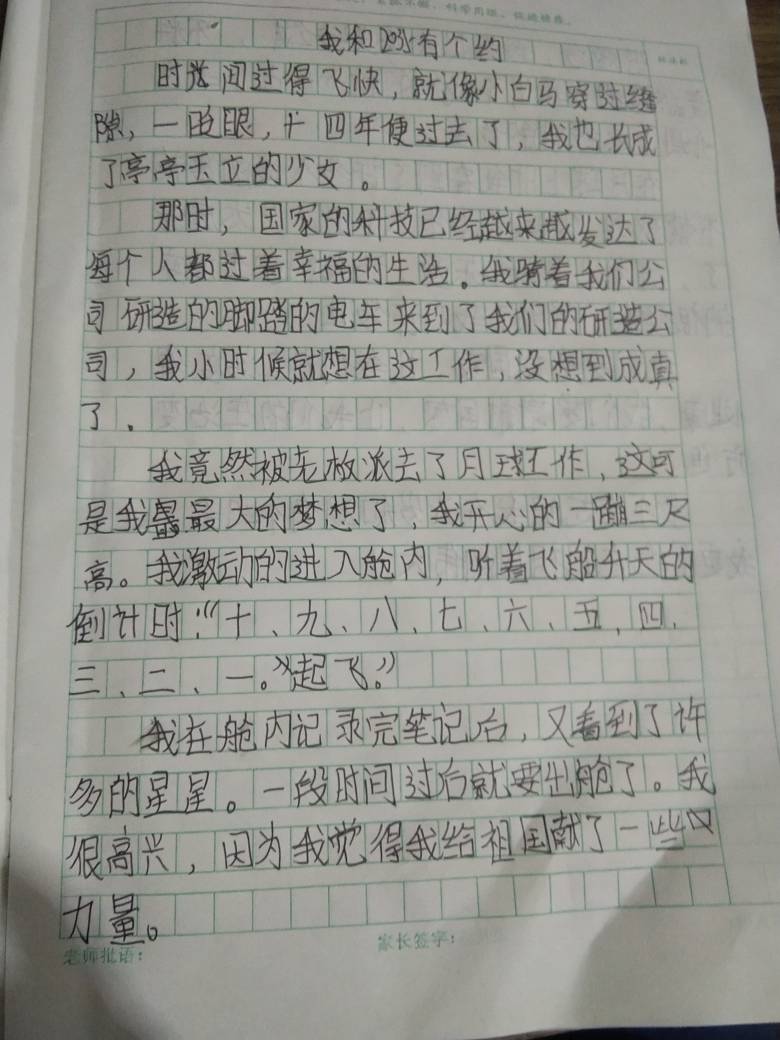 我和2035有个约
时光间过得飞快，就像小白马穿过缝
隙，一眨眼，十四年便过去了，我也长成
了亭亭玉立的少女。
那时，国家的科技已经越来越发达了
每个人都过着幸福的生活。我骑着我们公
司研造的脚踏的电车来到了我们的研造公
司，我小时候就想在这工作，没想到成真
了．
我竟然被老板派去了月球工作，这可
是我最大的梦想了，我开心的一蹦三尺
高。我激动的进入舱内，听着飞船升天的
倒计时：“十、九、八、七、六、五、四、
三、二、一。”“起飞。”
我在舱内记录完笔记后，又看到了许
多的星星。一段时间过后就要出舱了。我
很高兴，因为我觉得我给祖国献了一些
力量。
老师批语：
家长签字：